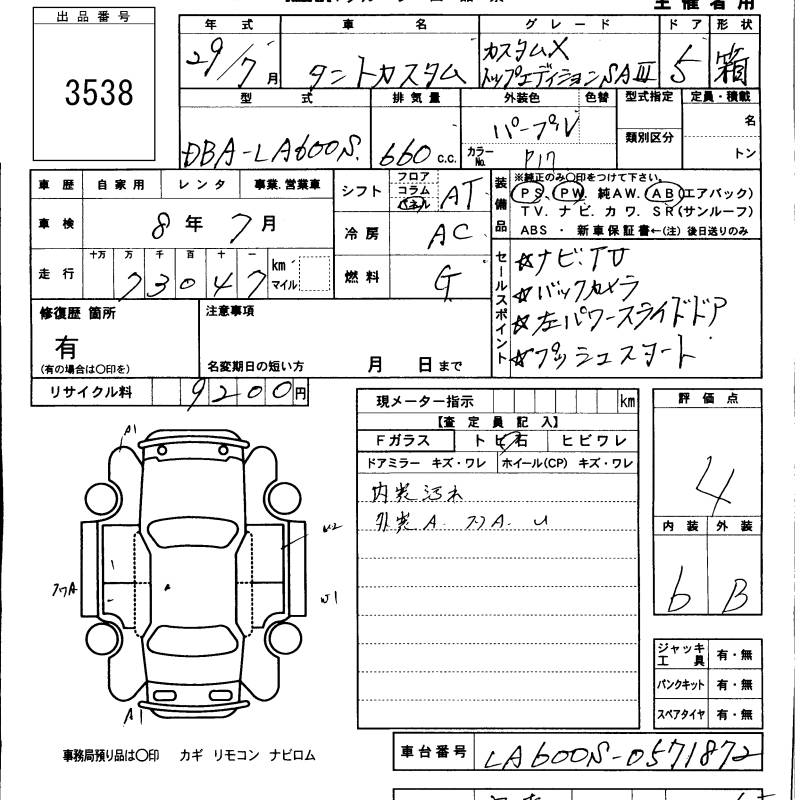 出品番号
3538
年式 車名 グレード ドア 形状
29/7月 タントカスタム カスタムX トップエディションSAⅢ 5 箱
型式 排気量 外装色 色替 型式指定 定員・積載
DBA-LA600S. 660 c.c. パープル 類別区分 名
カラーNo. P17 トン
車歴 自家用 レンタ 事業.営業車
車検 8年 7月
走行 十万 万 千 百 十 一
73047 km マイル
シフト フロア コラム パネル AT
冷房 AC
燃料 G
装備品
※純正のみ〇印をつけて下さい。
PS、PW、純AW. AB(エアバック)
TV. ナビ. カワ. SR(サンルーフ)
ABS ・ 新車保証書←(注) 後日送りのみ
セールスポイント
☆ナビ.TV
☆バックカメラ
☆左パワースライドドア
☆プッシュスタート
修復歴 箇所
有
(有の場合は〇印を)
注意事項
名変期日の短い方 月 日まで
リサイクル料 9200円
現メーター指示 km
【査定員記入】
Fガラス トビ石 ヒビワレ
ドアミラー キズ・ワレ ホイール(CP) キズ・ワレ
内装汚れ
外装A. フワA. U
評価点
4
内装 外装
b B
ジャッキ 工具 有・無
パンクキット 有・無
スペアタイヤ 有・無
A1
U2
フワA
U1
A1
事務局預り品は〇印 カギ リモコン ナビロム
車台番号 LA600S-0571872